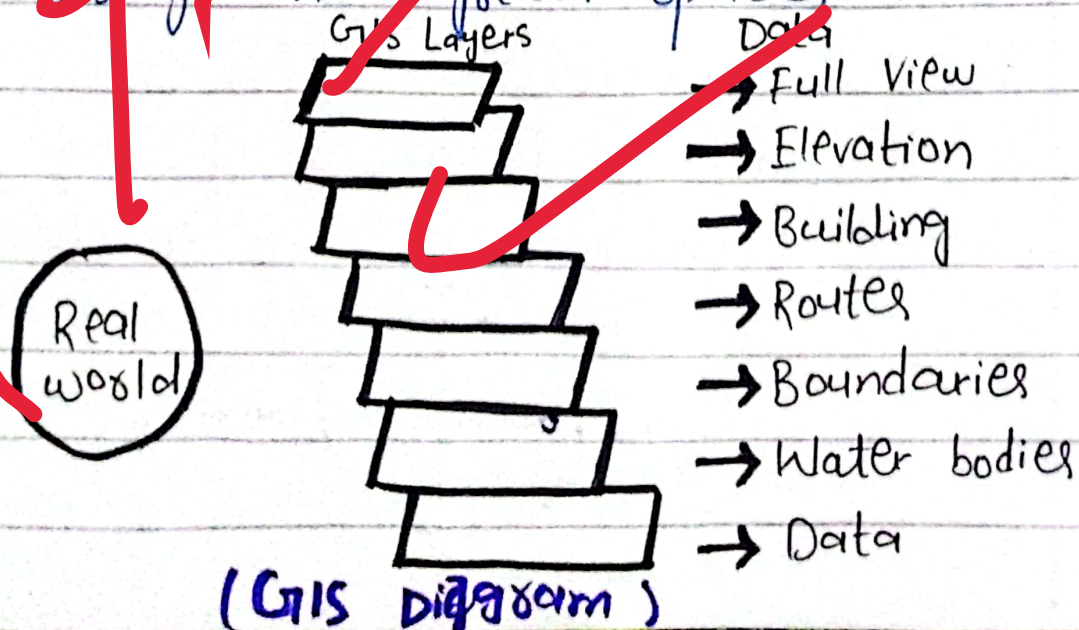 GIS Layers Data
→ Full View
→ Elevation
→ Building
→ Routes
→ Boundaries
→ Water bodies
→ Data
Real
world
(GIS Diagram)